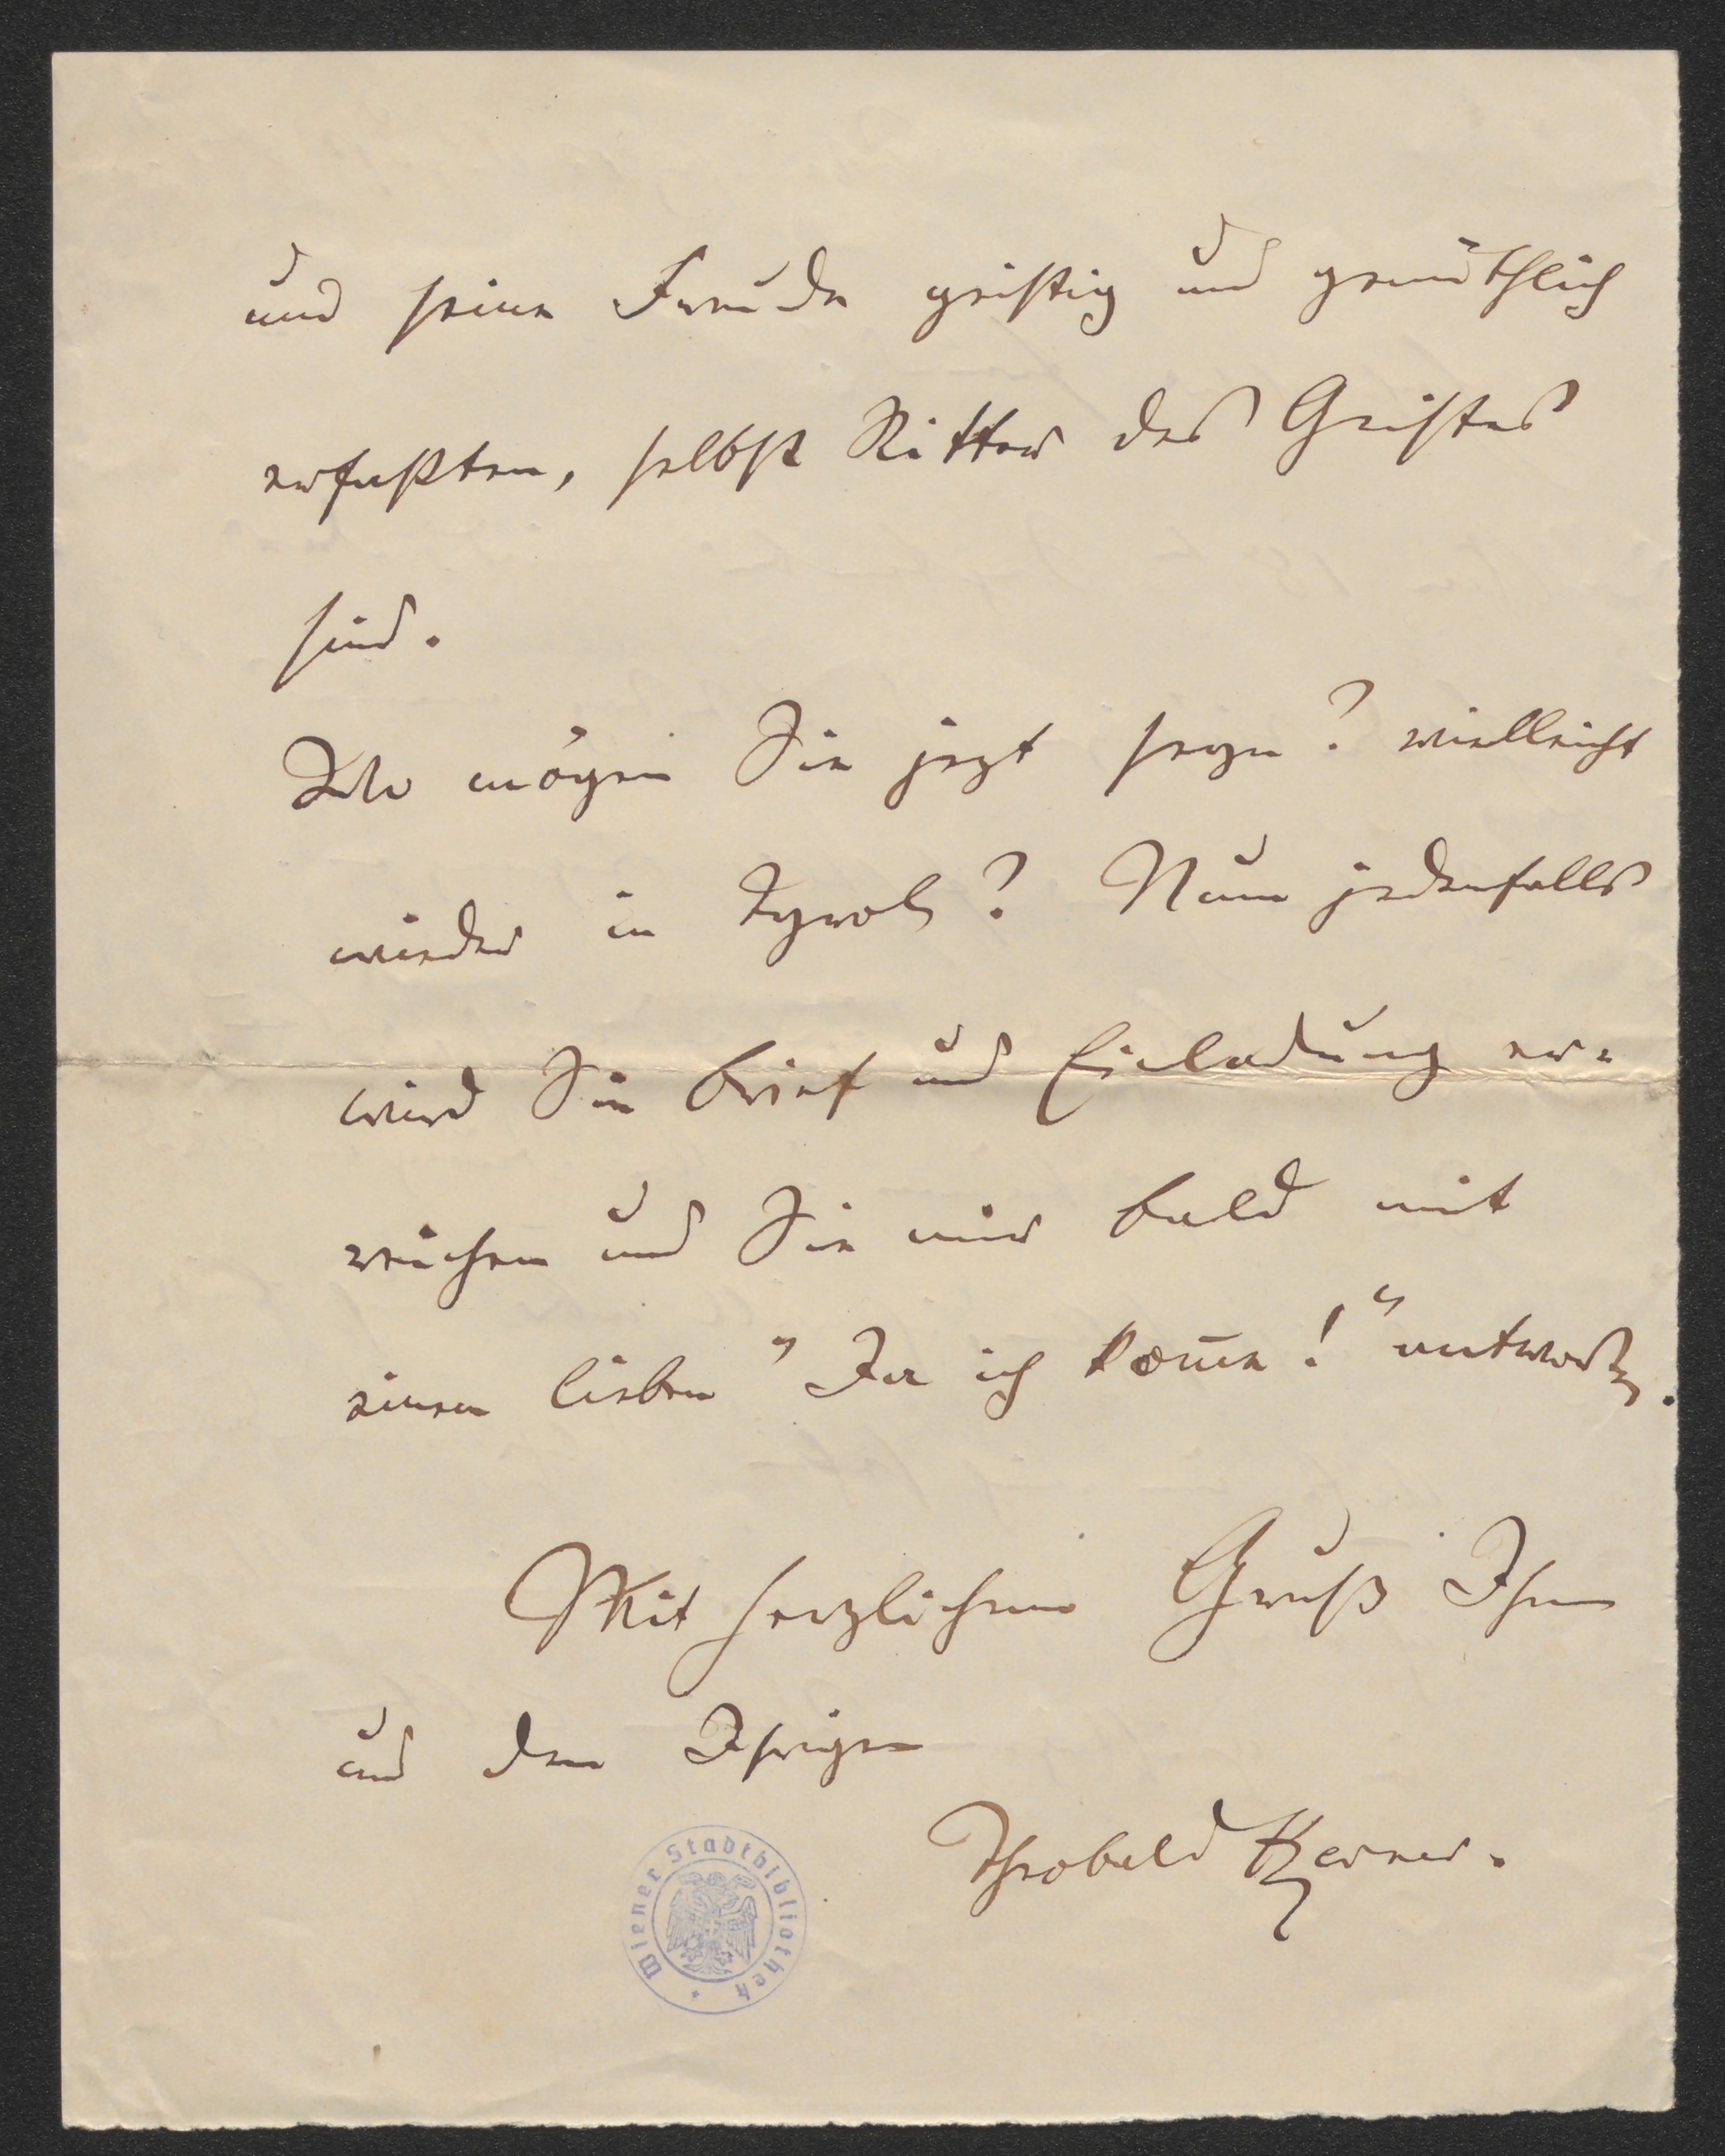 und seine Freude geistig und gemüthlich
erfaßten, selbst Ritter des Geistes
sind.
Wo mögen Sie jezt seyn? vielleicht
wieder in Tyrol? Nun jedenfalls
wird Sie Brief und Einladung er-
reichen und Sie mir bald mit
einem lieben "Ja ich kom̅e!" antworten.
Mit herzlichem Gruß Ihnen
und den Ihrigen
Theobald Kerner.
Wiener Stadtbibliothek